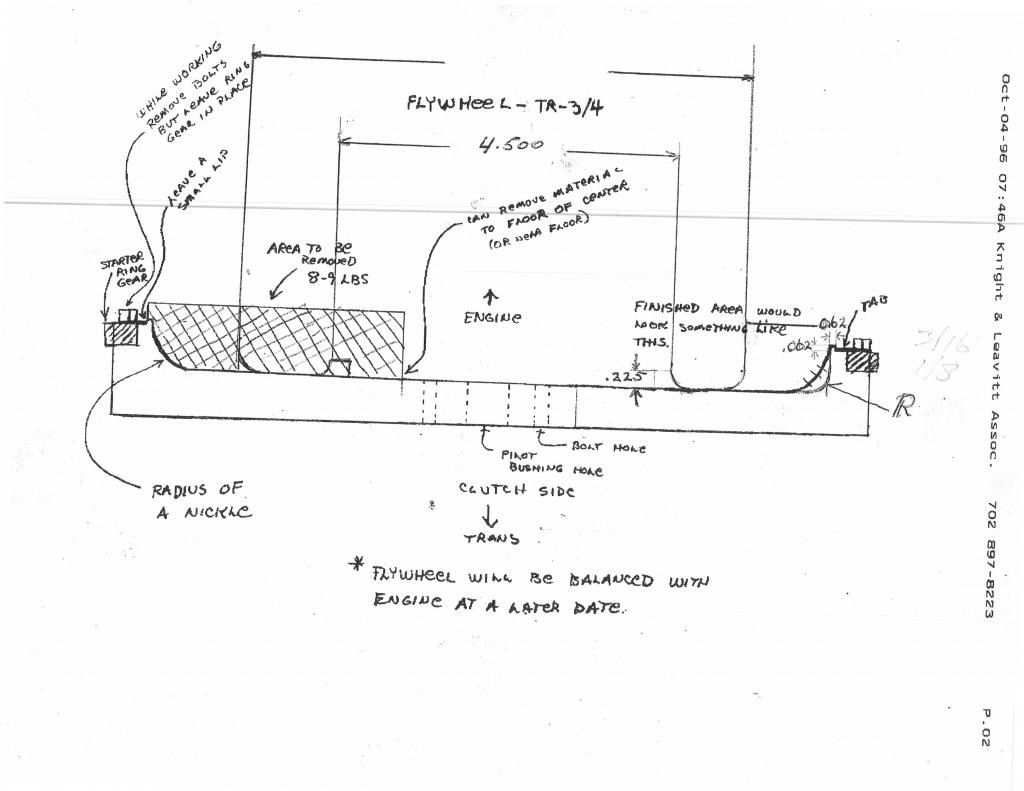 WHILE WORKING
REMOVE BOLTS
BUT LEAVE RING
GEAR IN PLACE
LEAVE A
SMALL LIP
FLYWHEEL - TR-3/4
4.500
CAN REMOVE MATERIAL
TO FLOOR OF CENTER
(OR NEAR FLOOR)
STARTER
RING
GEAR
AREA TO BE
REMOVED
8-9 LBS
ENGINE
FINISHED AREA WOULD
LOOK SOMETHING LIKE
THIS.
.062
TAB
.062
3/16
1/8
.225
R
BOLT HOLE
PILOT
BUSHING HOLE
CLUTCH SIDE
TRANS
RADIUS OF
A NICKLE
* FLYWHEEL WILL BE BALANCED WITH
ENGINE AT A LATER DATE.
Oct-04-96 07:46A Knight & Leavitt Assoc. 702 897-8223 P.02